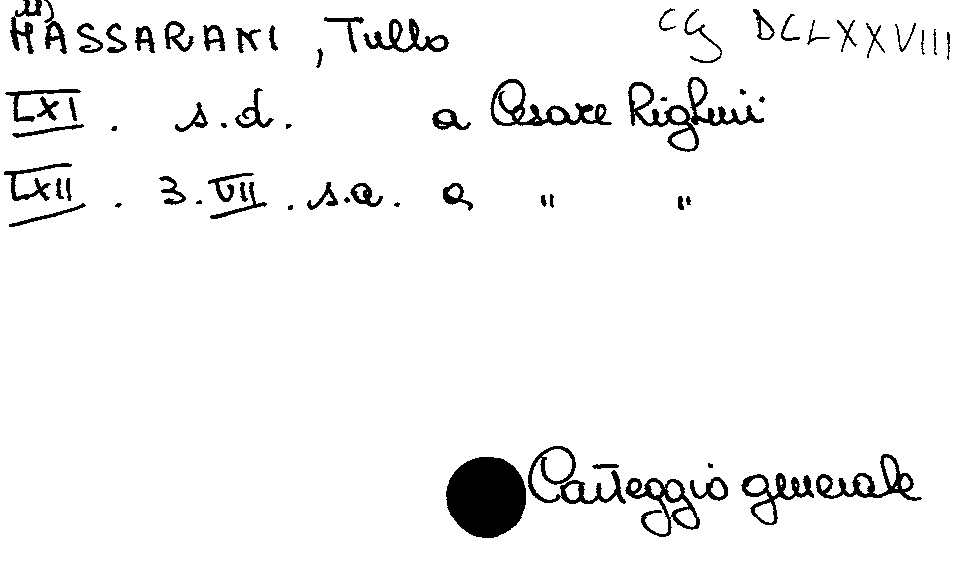 MASSARANI, Tullo CG DCLXXVIII
LXI. s.d. a Cesare Righini
LXII. 3.VII. s.a. a " "
Carteggio generale